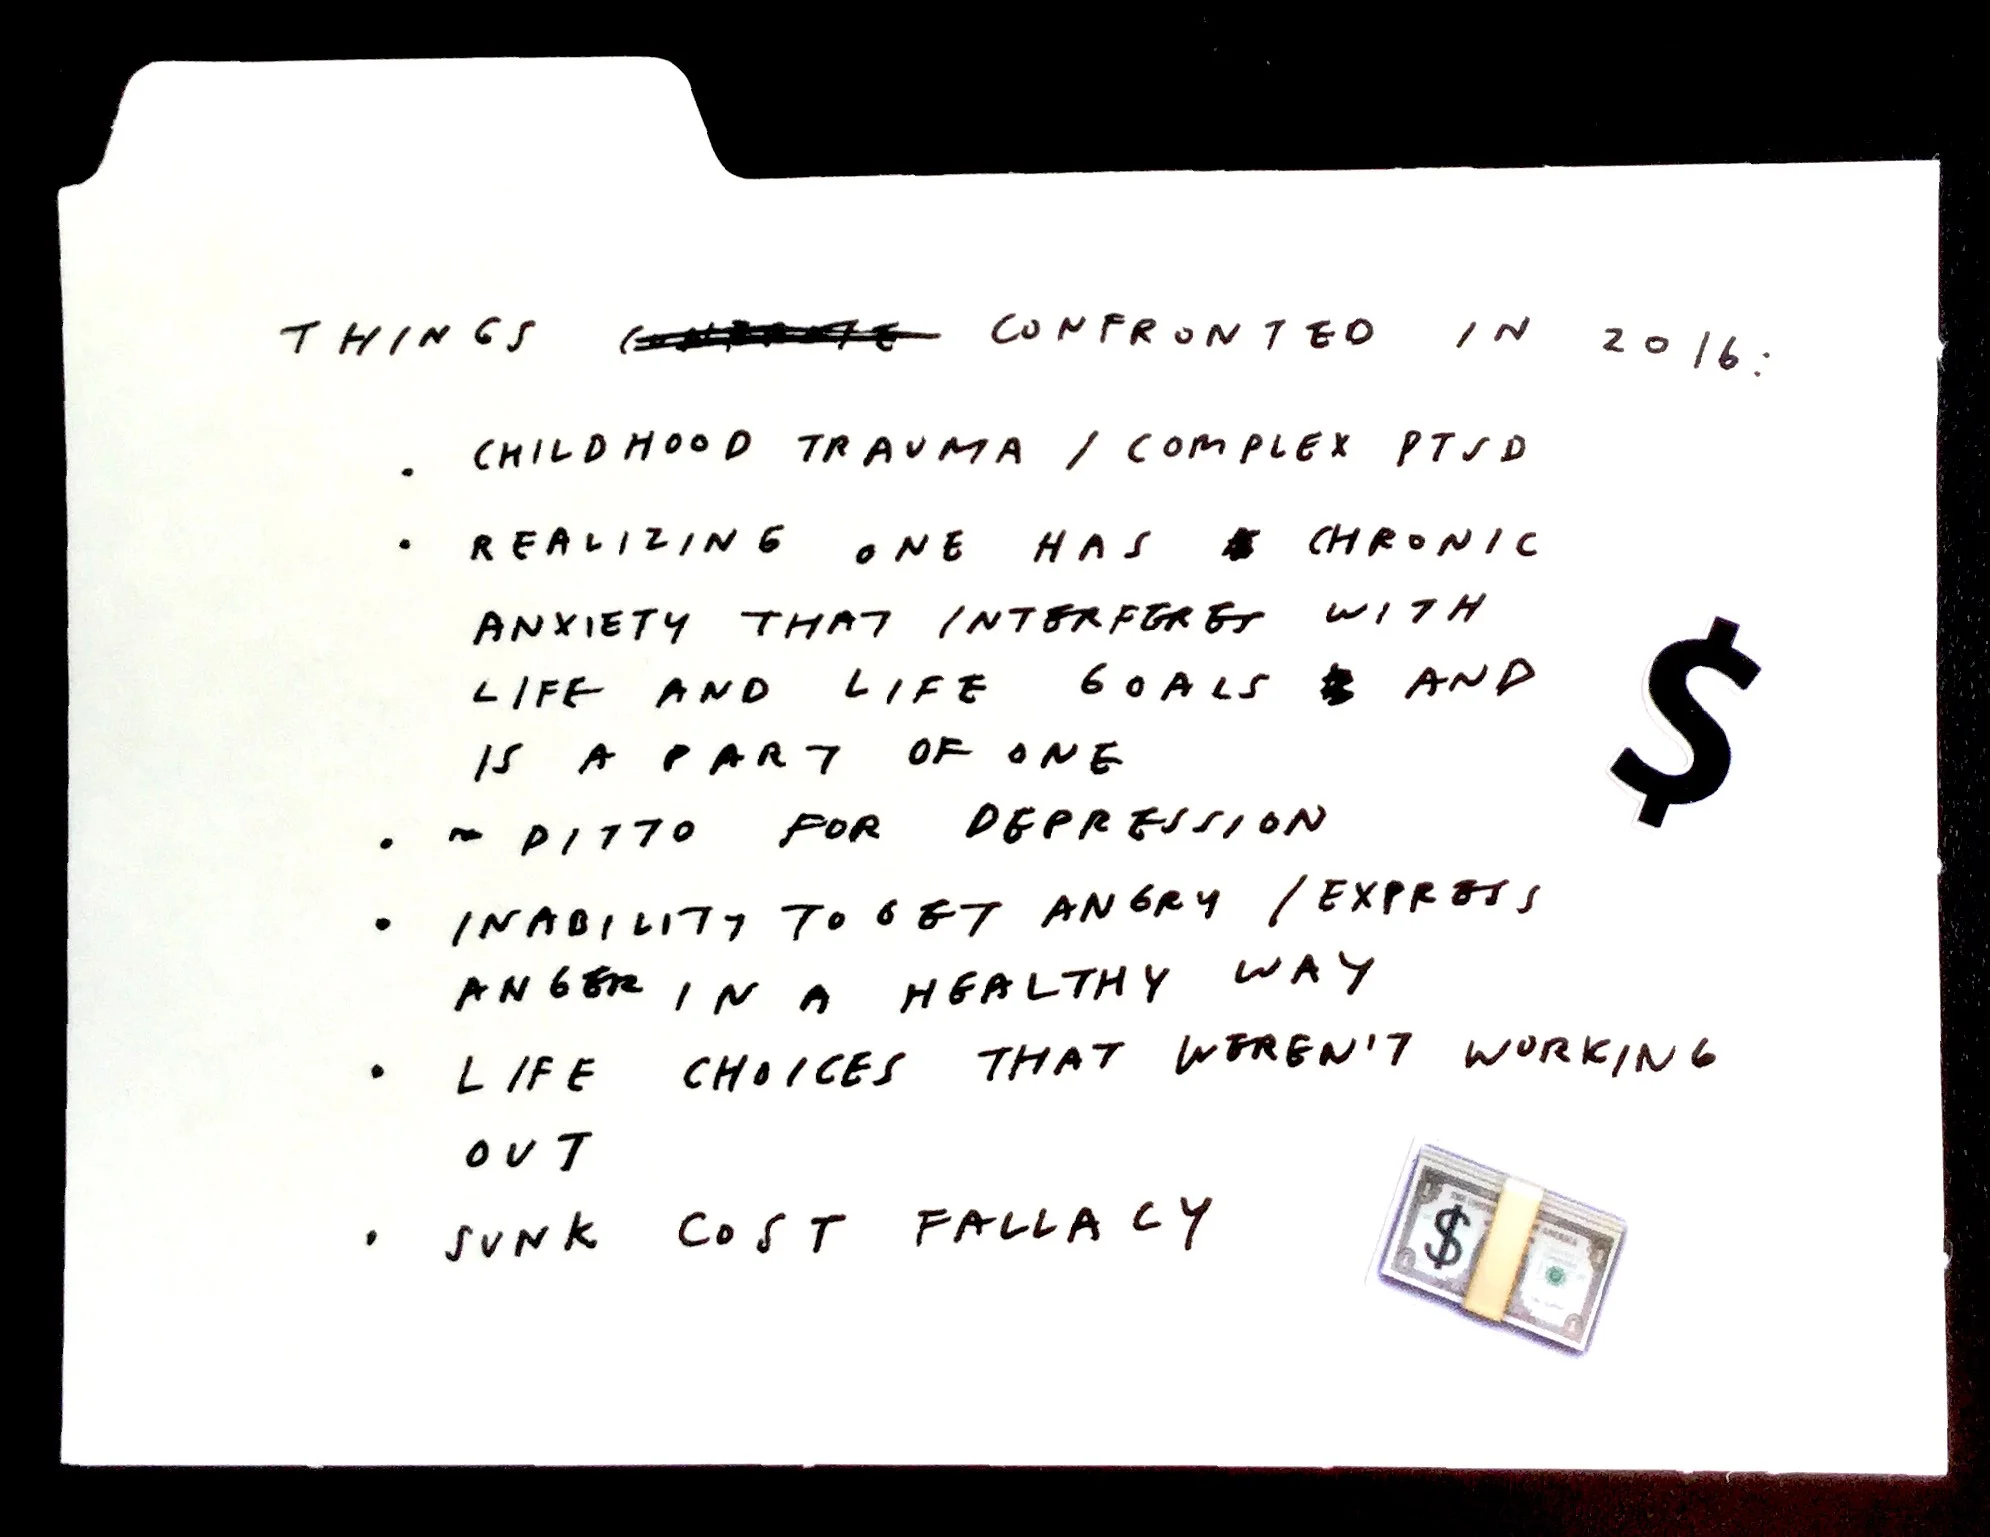 THINGS CONFRONTED IN 2016:
• CHILDHOOD TRAUMA / COMPLEX PTSD
• REALIZING ONE HAS CHRONIC
ANXIETY THAT INTERFERES WITH
LIFE AND LIFE GOALS AND
IS A PART OF ONE
• ~ DITTO FOR DEPRESSION
• INABILITY TO GET ANGRY / EXPRESS
ANGER IN A HEALTHY WAY
• LIFE CHOICES THAT WEREN'T WORKING
OUT
• SUNK COST FALLACY
$
$